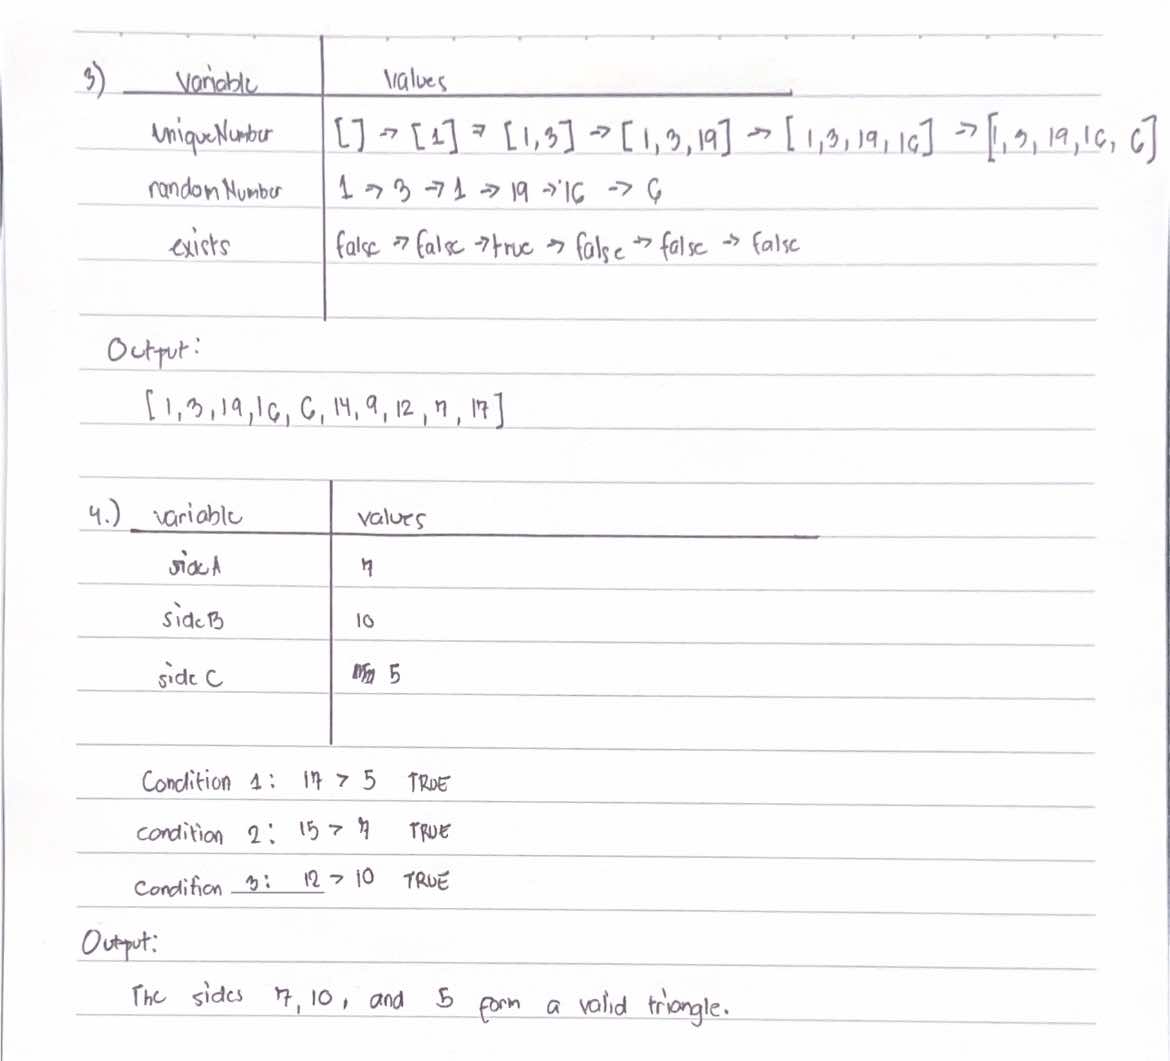 3) Variable values
uniqueNumber [] → [1] → [1,3] → [1,3,19] → [1,3,19,16] → [1,3,19,16,6]
randomNumber 1 → 3 → 1 → 19 → 16 → 6
exists false → false → true → false → false → false
Output:
[1,3,19,16,6,14,9,12,7,17]
4.) variable values
sideA 7
sideB 10
side C 5
Condition 1: 17 > 5 TRUE
condition 2: 15 > 7 TRUE
Condition 3: 12 > 10 TRUE
Output:
The sides 7, 10, and 5 form a valid triangle.